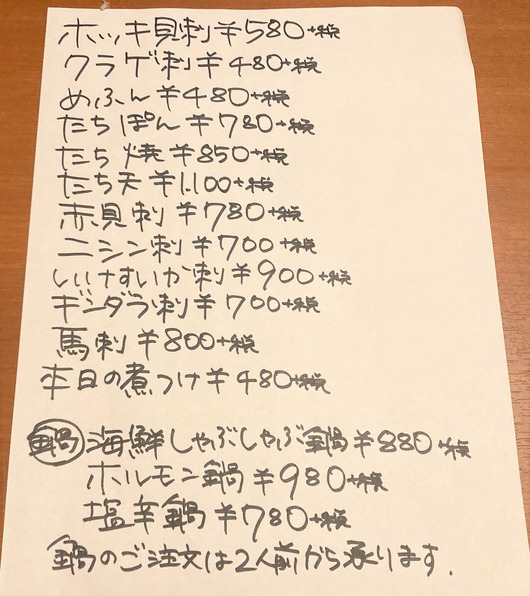 ホッキ貝刺¥580+税
クラゲ刺¥480+税
めふん¥480+税
たちぽん¥780+税
たち焼¥850+税
たち天¥1.100+税
赤貝刺¥780+税
ニシン刺¥700+税
刺¥900+税
ギンダラ刺¥700+税
馬刺¥800+税
本日の煮つけ¥480+税
鍋 海鮮しゃぶしゃぶ鍋¥880+税
ホルモン鍋¥980+税
塩辛鍋¥780+税
鍋のご注文は2人前から承ります.